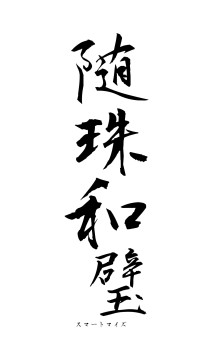 随珠和璧
スマートマイズ